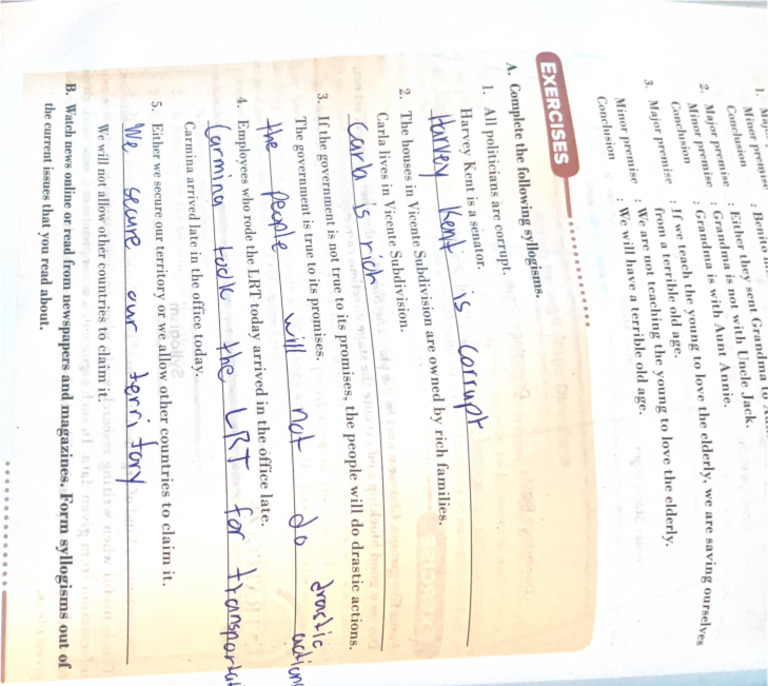 1.
Minor premise
Conclusion : Either they sent Grandma to
2. Major premise : Grandma is not with Uncle Jack.
Minor premise : Grandma is with Aunt Annie.
Conclusion : If we teach the young to love the elderly, we are saving ourselves
3. Major premise from a terrible old age.
Minor premise : We are not teaching the young to love the elderly.
Conclusion : We will have a terrible old age.
EXERCISES
A. Complete the following syllogisms.
1. All politicians are corrupt.
Harvey Kent is a senator.
Harvey Kent is corrupt
2. The houses in Vicente Subdivision are owned by rich families.
Carla lives in Vicente Subdivision.
Carla is rich
3. If the government is not true to its promises, the people will do drastic actions.
The government is true to its promises.
the people will not do drastic actions
4. Employees who rode the LRT today arrived in the office late.
Carmina took the LRT for
Carmina arrived late in the office today.
5. Either we secure our territory or we allow other countries to claim it.
We secure our territory
We will not allow other countries to claim it.
B. Watch news online or read from newspapers and magazines. Form syllogisms out of
the current issues that you read about.